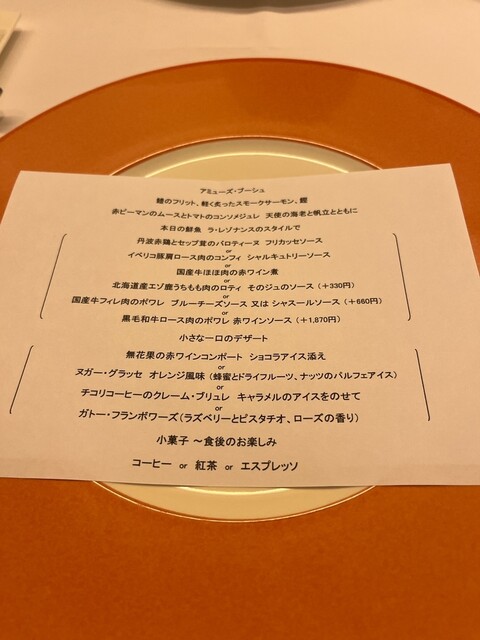 アミューズ・ブーシュ
鱧のフリット、軽く炙ったスモークサーモン、鰹
赤ピーマンのムースとトマトのコンソメジュレ 天使の海老と帆立とともに
本日の鮮魚 ラ・レゾナンスのスタイルで
丹波赤鶏とセップ茸のバロティーヌ フリカッセソース
or
イベリコ豚肩ロース肉のコンフィ シャルキュトリーソース
or
国産牛ほほ肉の赤ワイン煮
or
北海道産エゾ鹿うちもも肉のロティ そのジュのソース (+330円)
or
国産牛フィレ肉のポワレ ブルーチーズソース 又は シャスールソース (+660円)
or
黒毛和牛ロース肉のポワレ 赤ワインソース (+1,870円)
小さな一口のデザート
無花果の赤ワインコンポート ショコラアイス添え
or
ヌガー・グラッセ オレンジ風味 (蜂蜜とドライフルーツ、ナッツのパルフェアイス)
or
チコリコーヒーのクレーム・ブリュレ キャラメルのアイスをのせて
or
ガトー・フランボワーズ(ラズベリーとピスタチオ、ローズの香り)
小菓子 ~食後のお楽しみ
コーヒー or 紅茶 or エスプレッソ